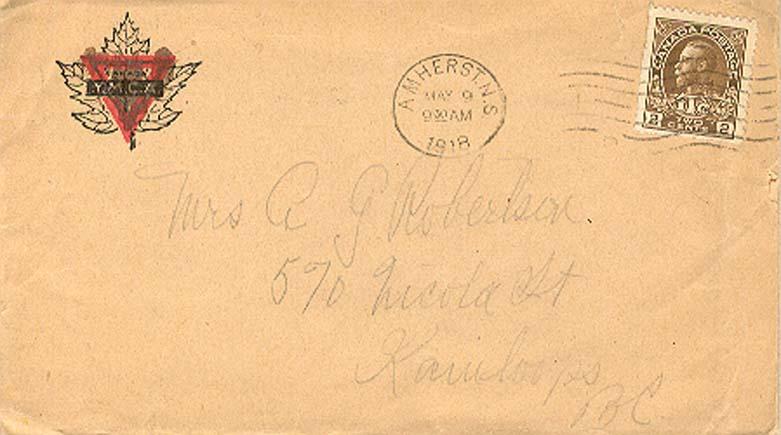 Y.M.C.A.
AMHERST. N.S
MAY 9
930 AM
1918
CANADA POSTAGE
1TC
2 TWO CENTS 2
Mrs A G Robertson
570 Nicola St
Kamloops
BC